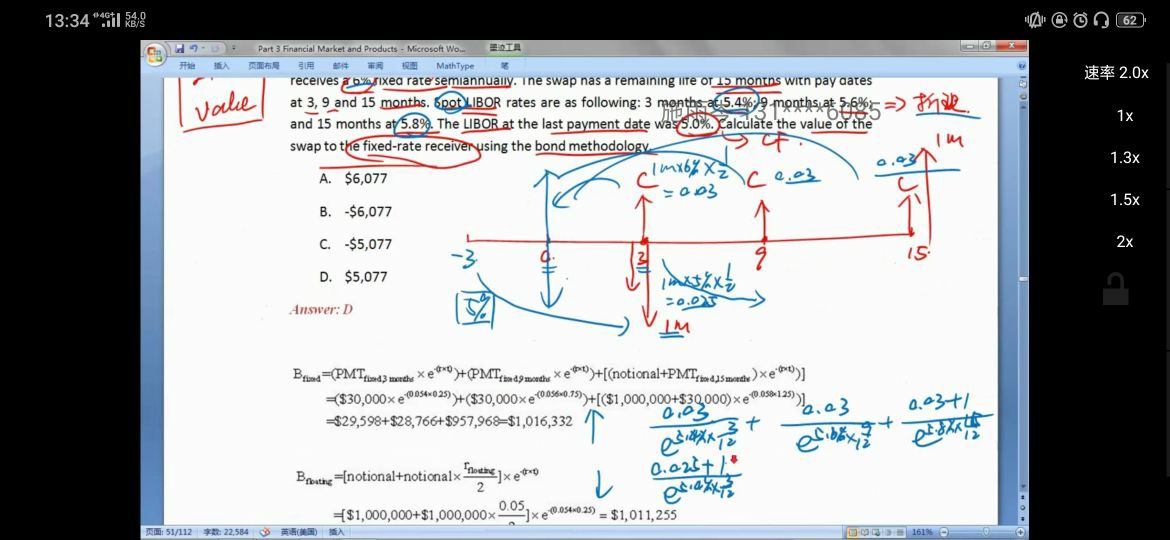 13:34 4G+ 54.0 KB/S 62
Part 3 Financial Market and Products - Microsoft Wo... 墨迹工具
开始 插入 页面布局 引用 邮件 审阅 视图 MathType 笔
速率 2.0x
1x
1.3x
1.5x
2x
value
receives a 6% fixed rate semiannually. The swap has a remaining life of 15 months with pay dates
at 3, 9 and 15 months. Spot LIBOR rates are as following: 3 months at 5.4%; 9 months at 5.6%;
and 15 months at 5.8%. The LIBOR at the last payment date was 5.0%. Calculate the value of the
swap to the fixed-rate receiver using the bond methodology.
⇒ 折现
131****6085
→ CF.
A. $6,077
B. -$6,077
C. -$5,077
D. $5,077
C 1m×6%×1/2
= 0.03
C 0.03
0.03
C
1M
-3 0 3 9 15
5%
1m×5%×1/2
= 0.025
1M
Answer: D
Bfixed=(PMTfixed,3 months × e-(r×t))+(PMTfixed,9 months × e-(r×t))+[(notional+PMTfixed,15 months)×e-(r×t))]
=($30,000×e-(0.054×0.25))+($30,000×e-(0.056×0.75))+[($1,000,000+$30,000)×e-(0.058×1.25))]
=$29,598+$28,766+$957,968=$1,016,332
0.03 / e5.4%×3/12 + 0.03 / e5.6%×9/12 + 0.03+1 / e5.8%×15/12
Bfloating=[notional+notional×rfloating/2]×e-(r×t)
0.025+1
=[$1,000,000+$1,000,000×0.05/2]×e-(0.054×0.25) = $1,011,255
页面: 51/112 字数: 22,584 英语(美国) 插入 161%